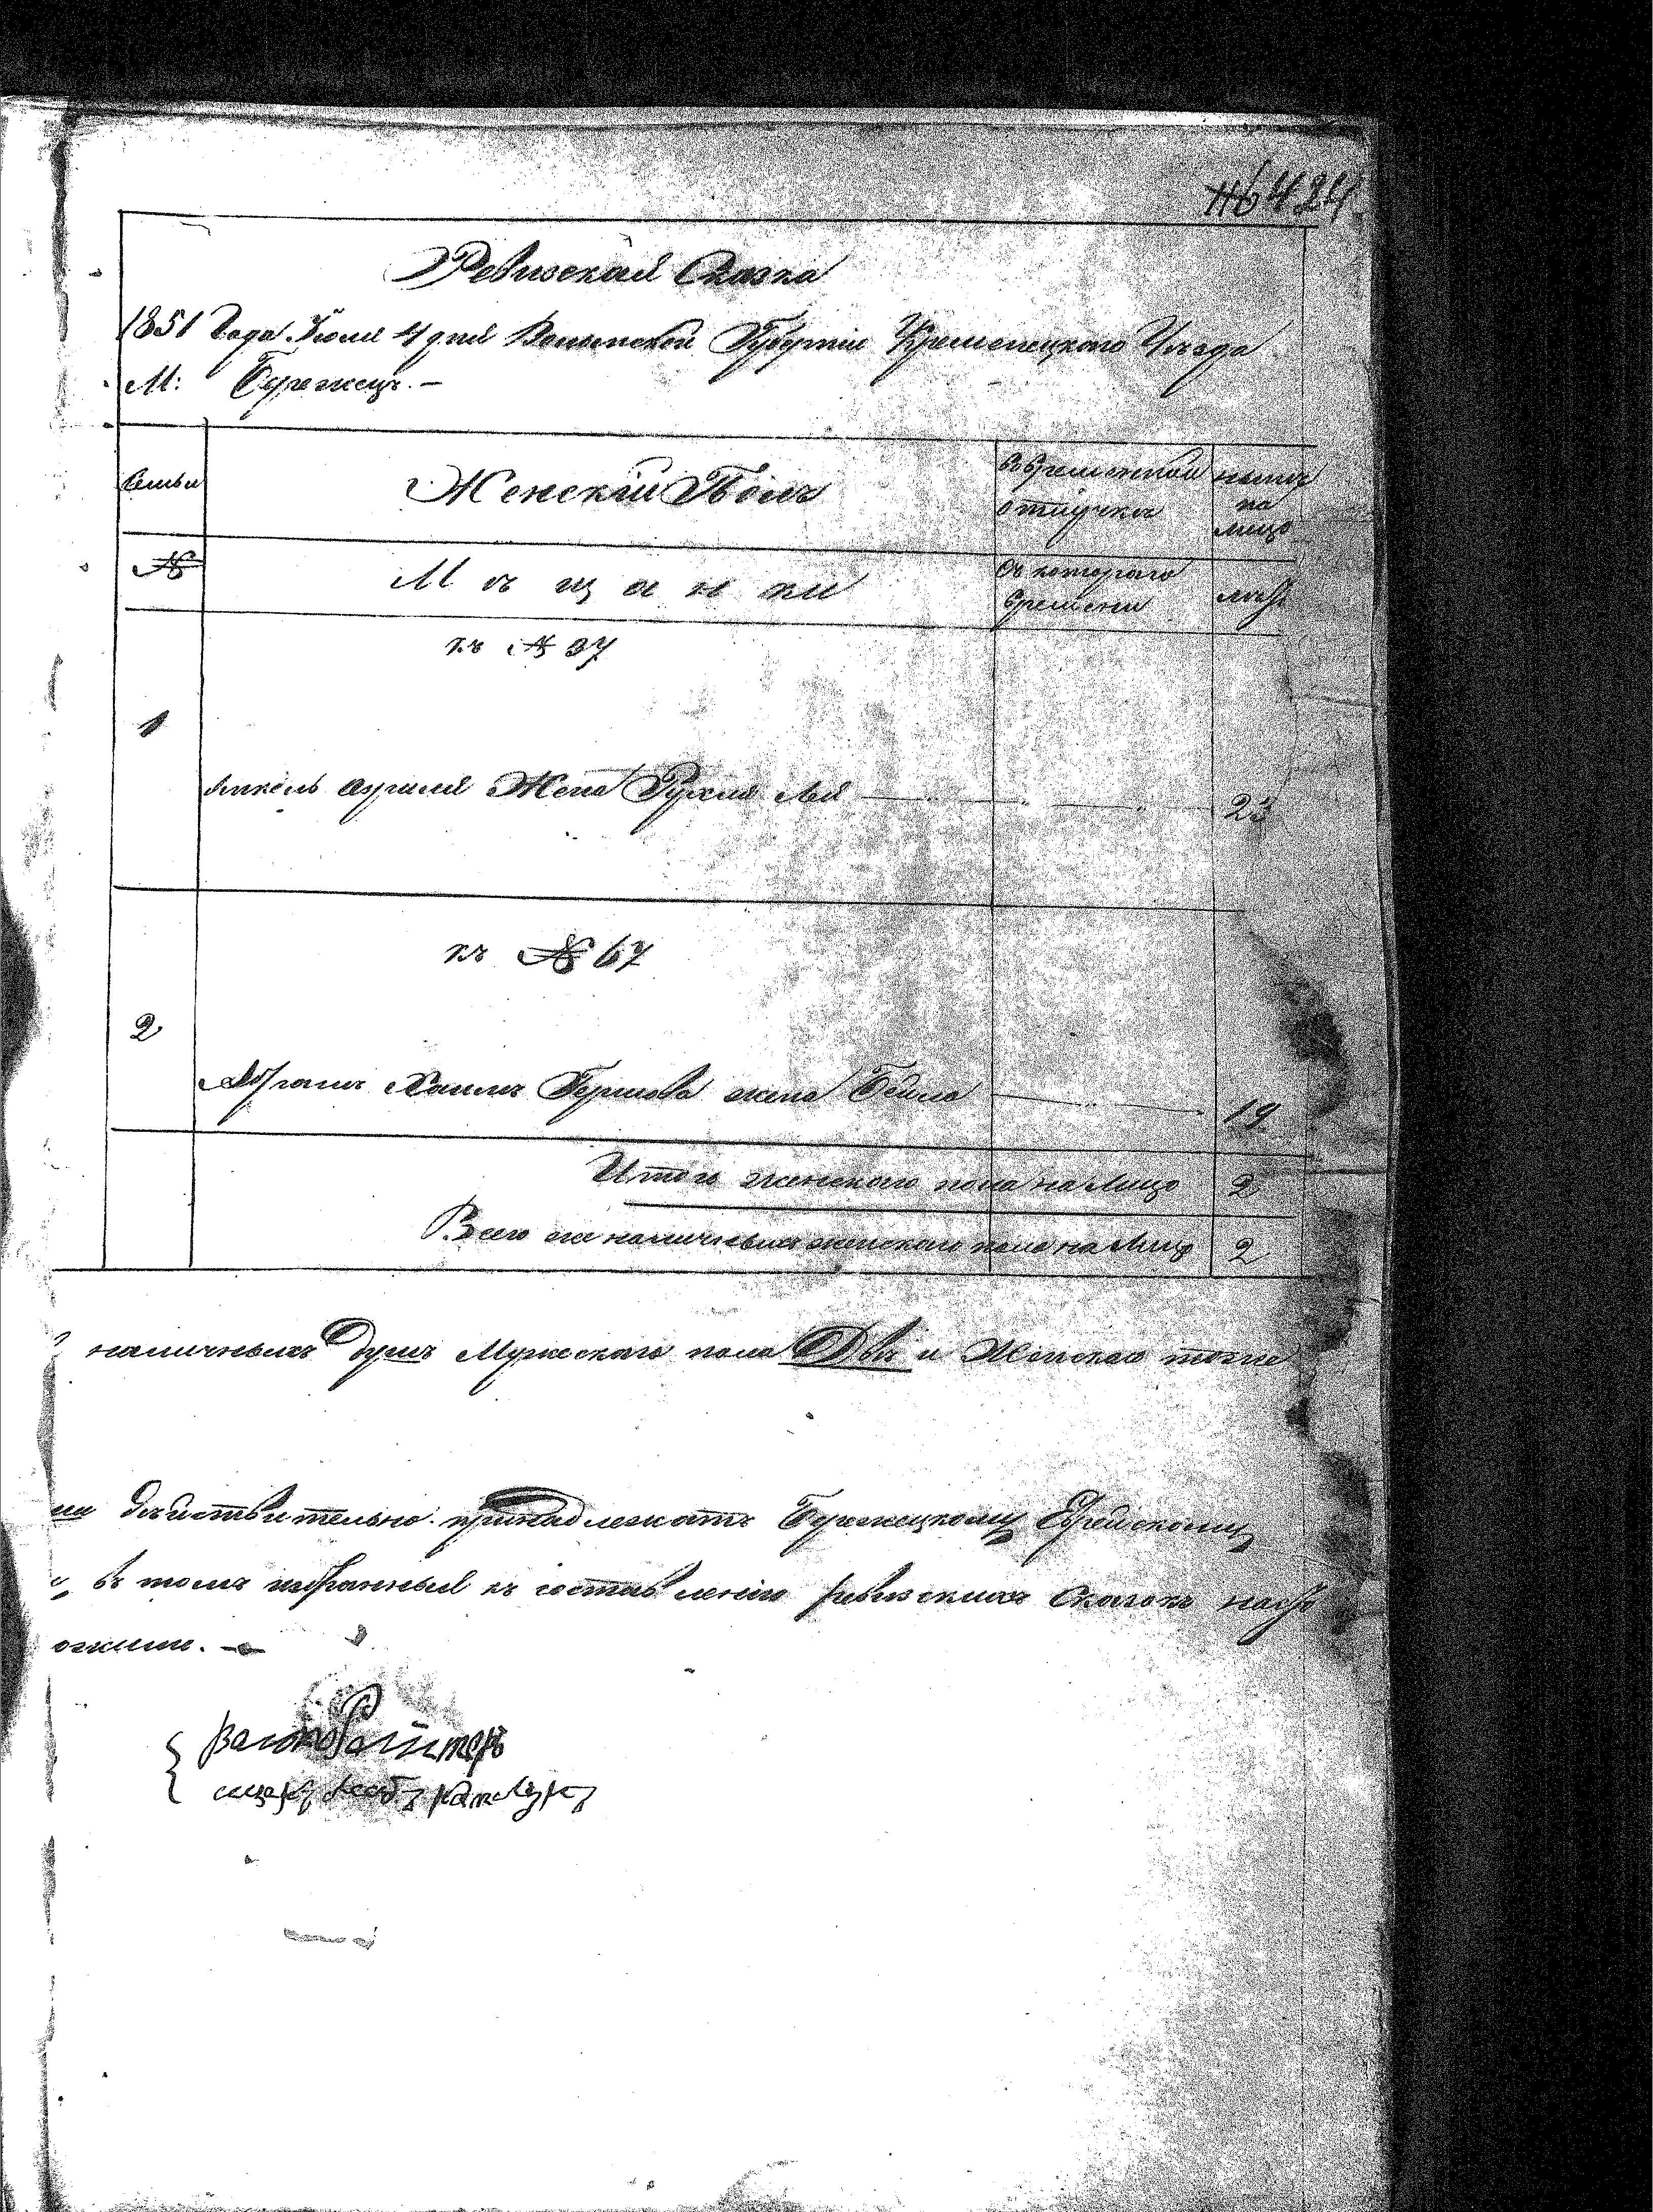 424
Ревизская Сказка
1851 Года Июля 4 дня Волынской Губерніи Кременецкого Уезда
М: Бережецъ. —
Семьи
Женскій Полъ
во временной отлучкѣ
нынѣ на лицо
№
Мѣщанки
Съ котораго времени
лѣта
къ № 37
1
Жена Рухля Лея 23
къ № 67
2
Хаимъ Гершова жена Бейла 19
Итого женскаго пола на Лицо 2
Всего же наличныхъ женскаго пола на Лицо 2
наличныхъ Душъ Мужескаго пола Двѣ и Женскаго тоже
дѣйствительно принадлежатъ Бережецкому Еврейскому
въ томъ избранный къ составленію ревизскихъ Сказокъ